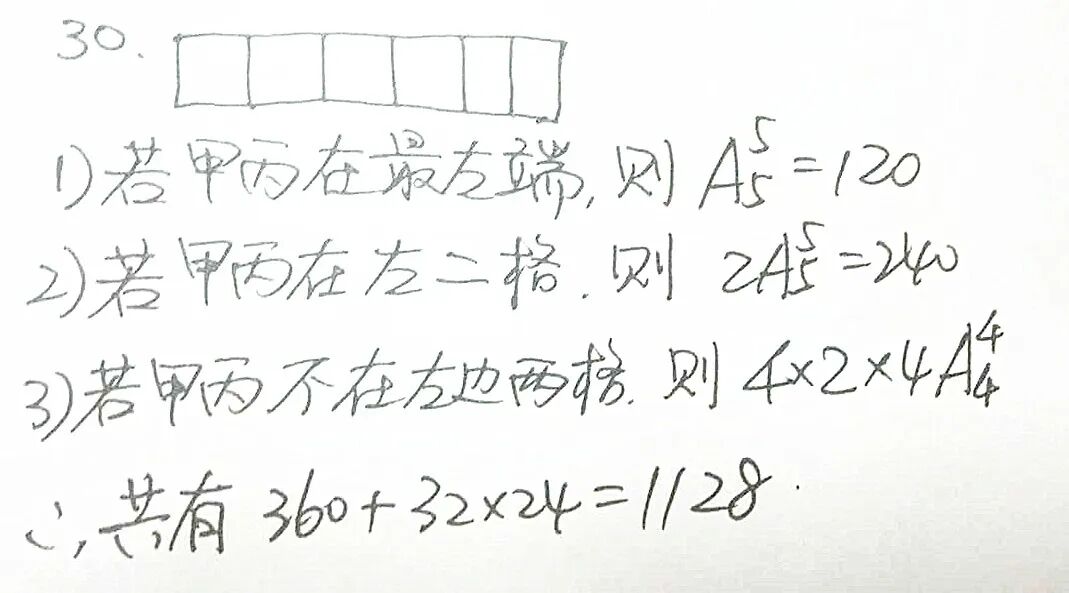 30.
1)若甲丙在最左端,则 A₅⁵=120
2)若甲丙在左二格.则 2A₅⁵=240
3)若甲丙不在左边两格.则 4×2×4A₄⁴
∴共有 360+32×24=1128.